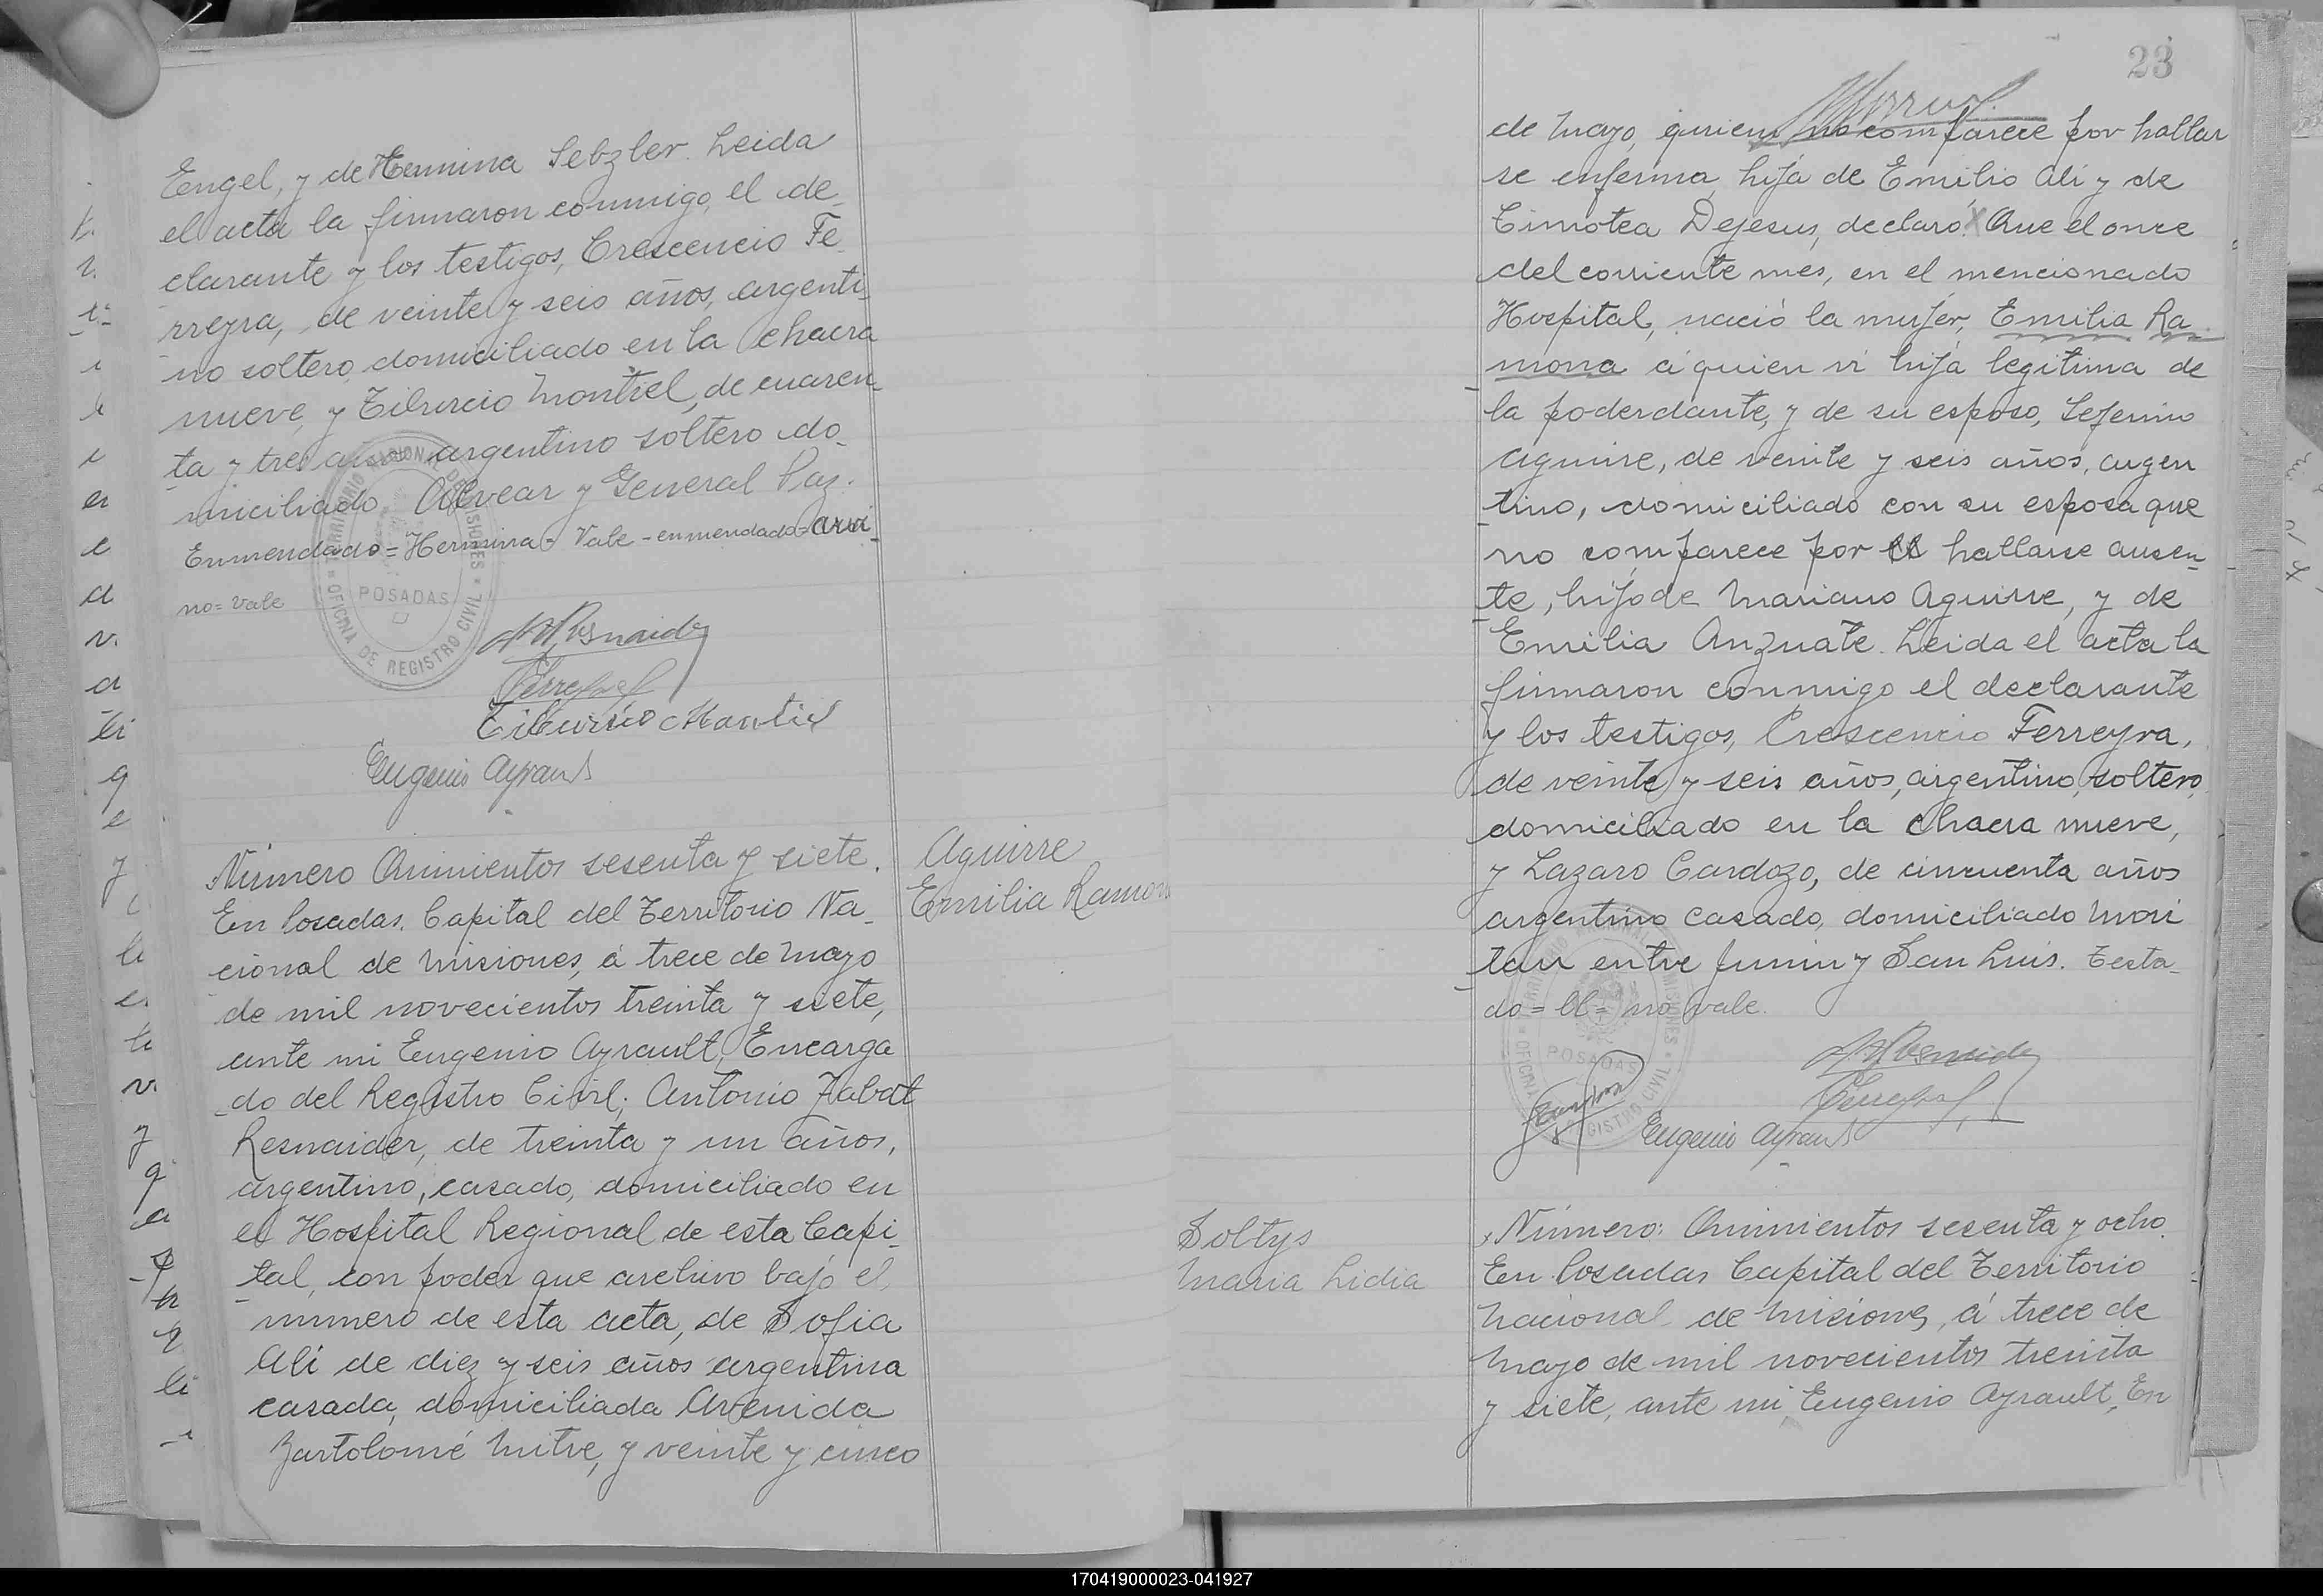 Engel, y de Hermina Sebzler. Leida
el acta la firmaron conmigo, el de_
clarante y los testigos, Crescencio Fe_
rreyra, de veinte y seis años, argenti_
no soltero domiciliado en la chacra
nueve, y Tiburcio Montiel, de cuaren_
ta y tres años argentino soltero do_
miciliado Alvear y General Paz.
Enmendado=Hermina=Vale-enmendado=arai_
no=Vale
TERRITORIO NACIONAL DE MISIONES
POSADAS
OFICINA DE REGISTRO CIVIL
Tiburcio Montiel
Eugenio Ayrault
Número Quinientos sesenta y siete.
En Posadas. Capital del Territorio Na_
cional de Misiones, á trece de Mayo
de mil novecientos treinta y siete,
ante mi Eugenio Ayrault, Encarga
do del Registro Civil; Antonio Zabat
Resnaider, de treinta y un años,
argentino, casado, domiciliado en
el Hospital Regional de esta Capi_
tal, con poder que archivo bajo el
numero de esta acta, de Sofia
Ali de diez y seis años argentina
casada, domiciliada Avenida
Bartolomé Mitre, y veinte y cinco
Aguirre
Emilia Ramon
23
de Mayo, quien no comparece por hallar
se enferma, hija de Emilio Ali y de
Timotea Dejesus, declaró: Que el once
del corriente mes, en el mencionado
Hospital, nació la mujer, Emilia Ra_
mona á quien vi hija legitima de
la poderdante, y de su esposo, Seferino
Aguirre, de veinte y seis años, argen
tino, domiciliado con su esposa que
no comparece por ll hallarse ausen_
te, hijo de Mariano Aguirre, y de
Emilia Anzuate. Leida el acta la
firmaron conmigo el declarante
y los testigos, Crescencio Ferreyra,
de veinte y seis años, argentino, soltero,
domiciliado en la chacra nueve,
y Lazaro Cardozo, de cincuenta años
argentino casado, domiciliado Mori
tan entre Junin y San Luis. Testa_
do=ll=no vale.
POSADAS
Eugenio Ayrault
Soltys
Maria Lidia
Número: Quinientos sesenta y ocho.
En Posadas Capital del Territorio
Nacional de Misiones, á trece de
Mayo de mil novecientos treinta
y siete, ante mi Eugenio Ayrault, En
170419000023-041927